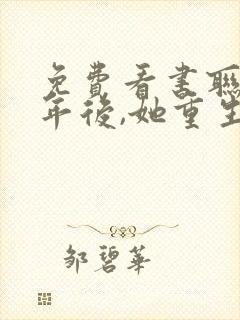 免費看書聯
年後,她重生
鄒碧華